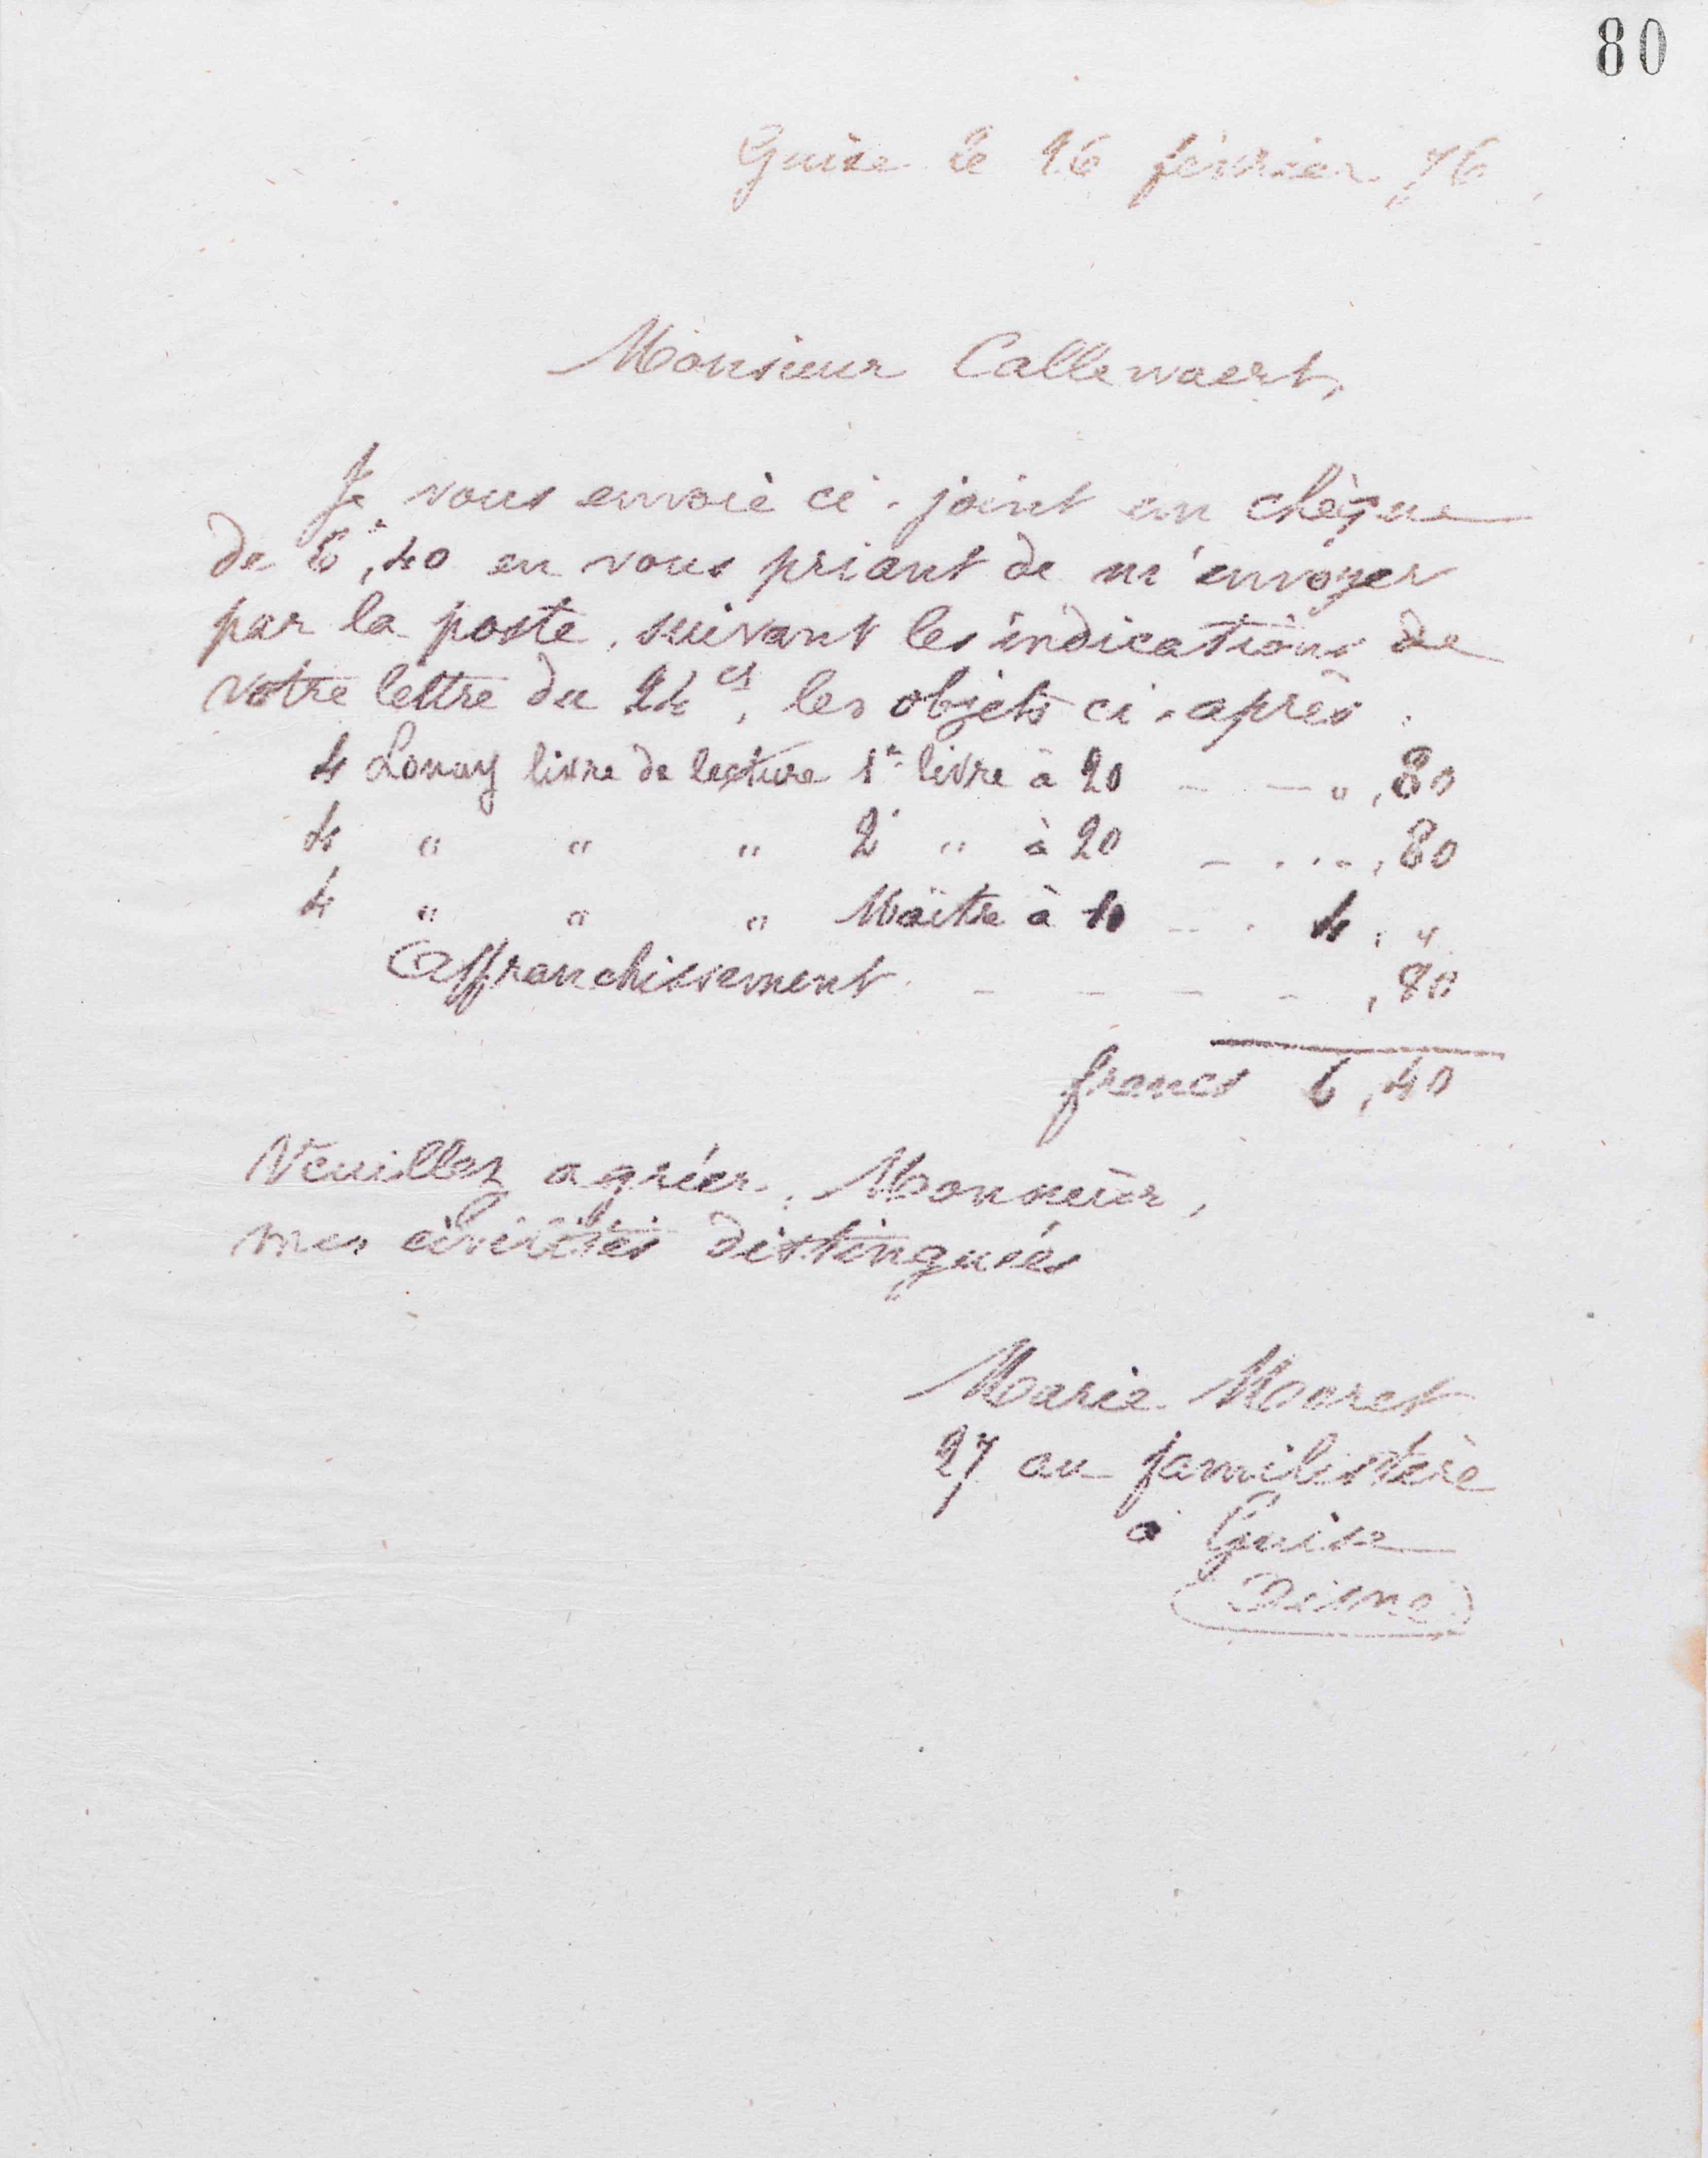 80
Guise le 26 février 76
Monsieur Callewaert,
Je vous envoie ci-joint un chèque
de 6f,40 en vous priant de m'envoyer
par la poste, suivant les indications de
votre lettre du 24 ct, les objets ci-après :
4 Lonay livre de lecture 1er livre à 20 - - - " ,80
4 " " " 2e " à 20 - - - - ,80
4 " " " Maître à 1 - - 4 , "
Affranchissement - - - - ,80
francs 6,40
Veuillez agréer, Monsieur,
mes civilités distinguées
Marie Moret
27 au familistère
à Guise
(Aisne)